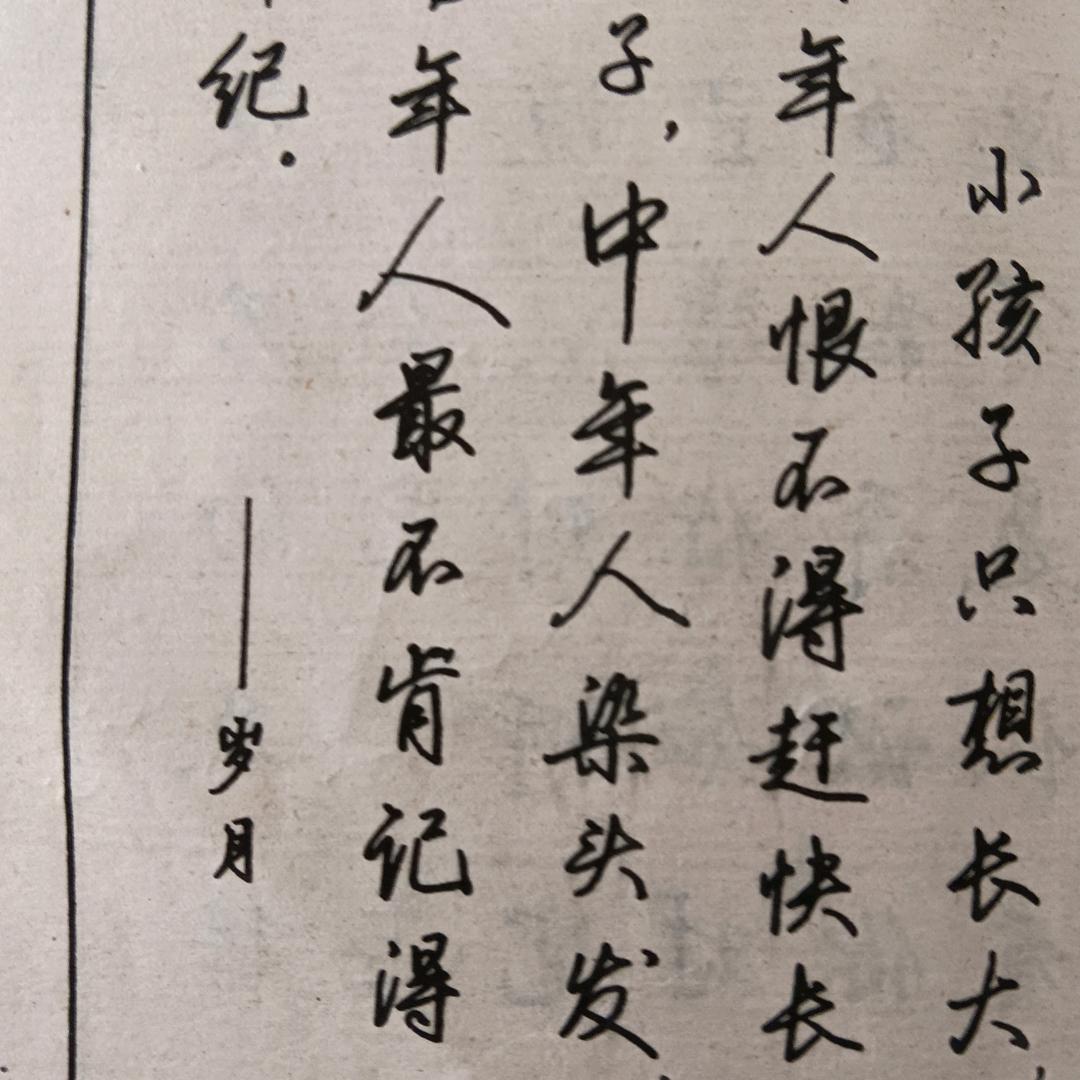 小孩子只想长大，
年人恨不得赶快长
子，中年人染头发，
年人最不肯记得
纪．
——岁月